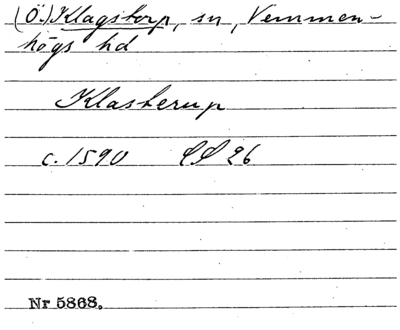 (Ö.) Klagstorp, sn, Vemmen-
högs hd
Klasterup
c. 1590 SS 26
Nr 5868.